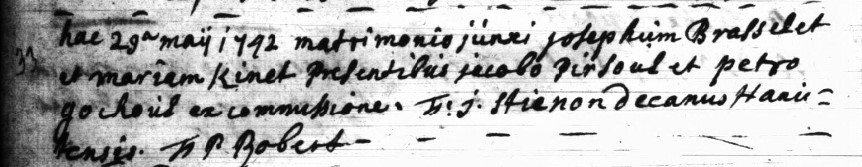 33 hac 29a maij 1742 matrimonio junxi josephum Brasselet
et mariam Kinet presentibus jacobo pirsoul et petro
gochoul ex commissione. j. stienon Decanus Hanu=
tensis. P Robert